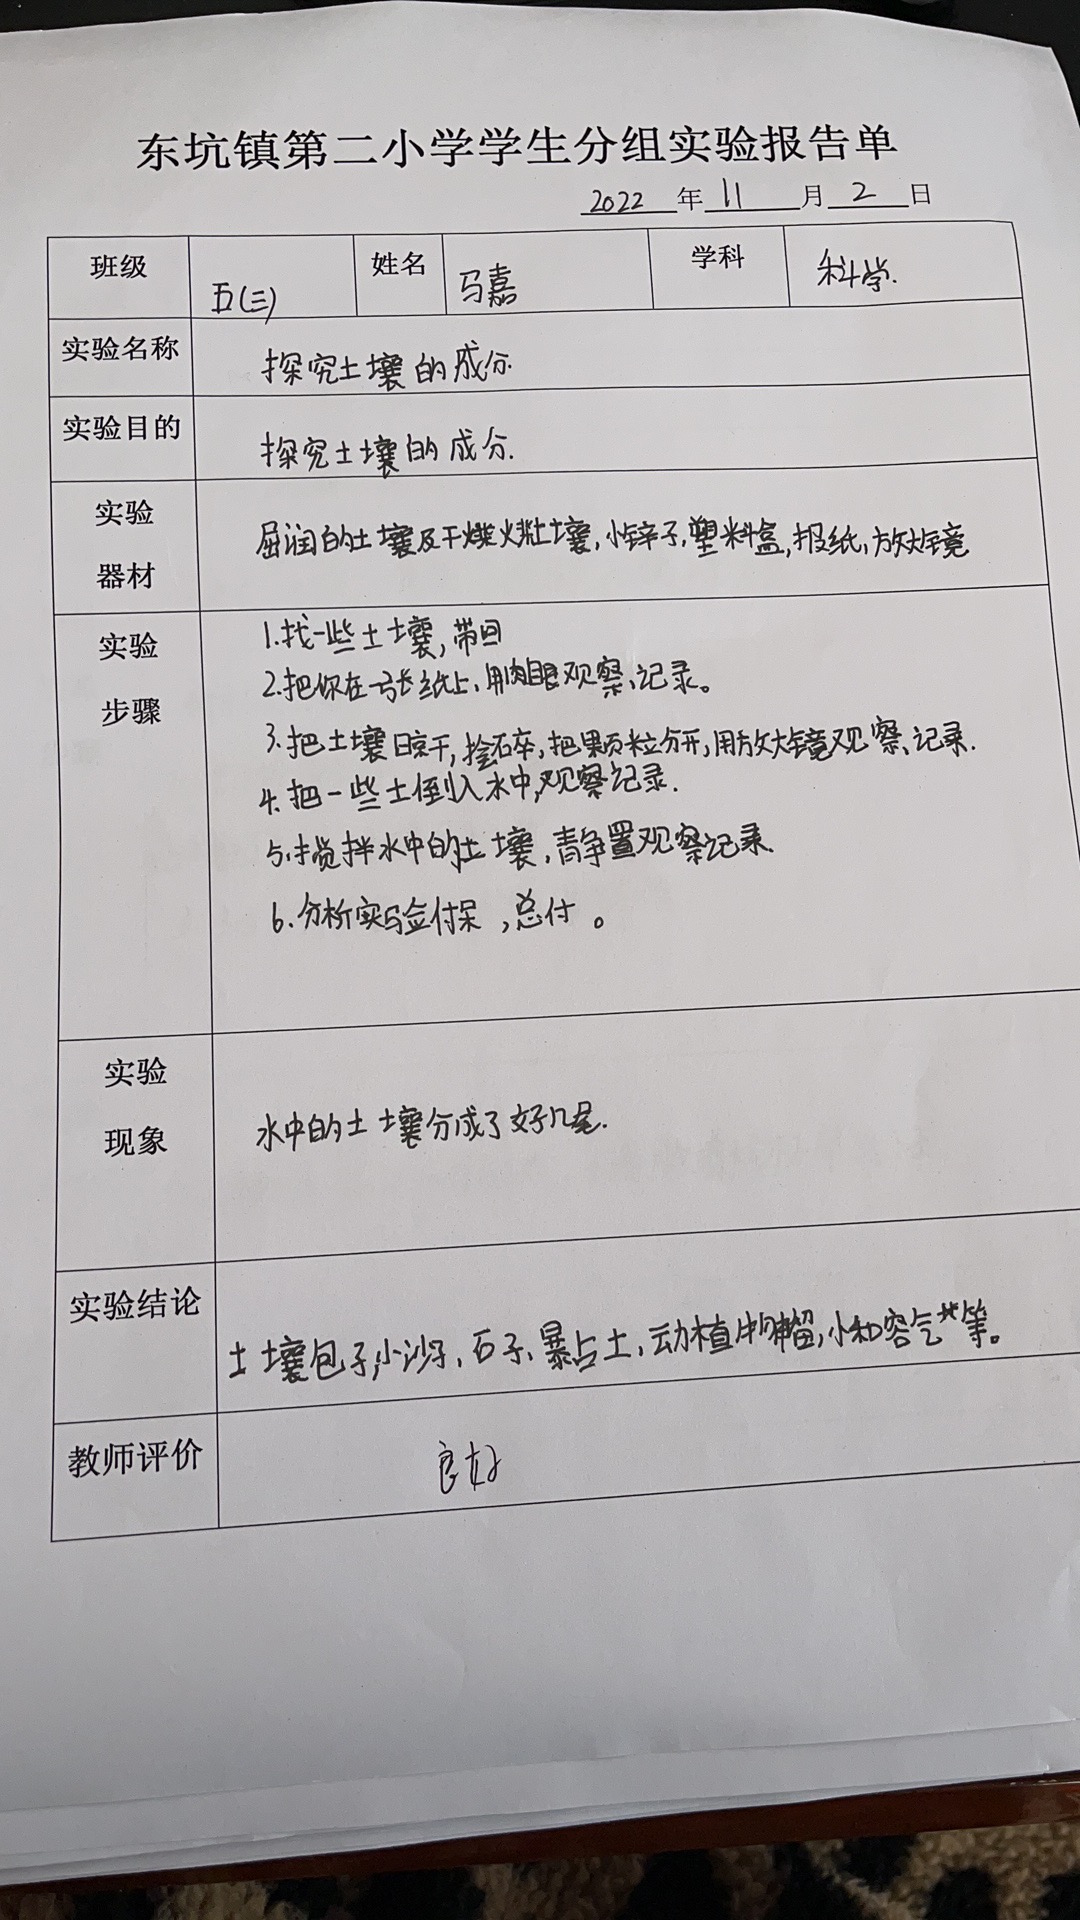 东坑镇第二小学学生分组实验报告单
2022年11月2日
班级 五(三) 姓名 马嘉 学科 科学.
实验名称 探究土壤的成分.
实验目的 探究土壤的成分.
实验器材 屈润的土壤及干燥土壤,小锌子,塑料盒,报纸,放大镜
实验步骤
1.找一些土壤,带回
2.把你在一张纸上,用肉眼观察、记录。
3.把土壤晾干,捡石卒,把果页粒分开,用放大镜观察、记录.
4.把一些土倒入水中,观察记录.
5.搅拌水中的土壤,静置观察记录.
6.分析实验付呆,总付。
实验现象 水中的土壤分成了好几尾.
实验结论 土壤包子,小沙子,石子,暴占土,动植物,小和容气等。
教师评价 良好